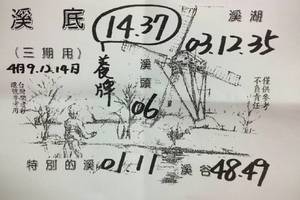 溪底
(三期用)
4月9.12.14日
14.37
養牌
溪頭
06
溪湖
03.12.35
僅供參考
不負責任
特別的溪
01.11
溪谷
48.49